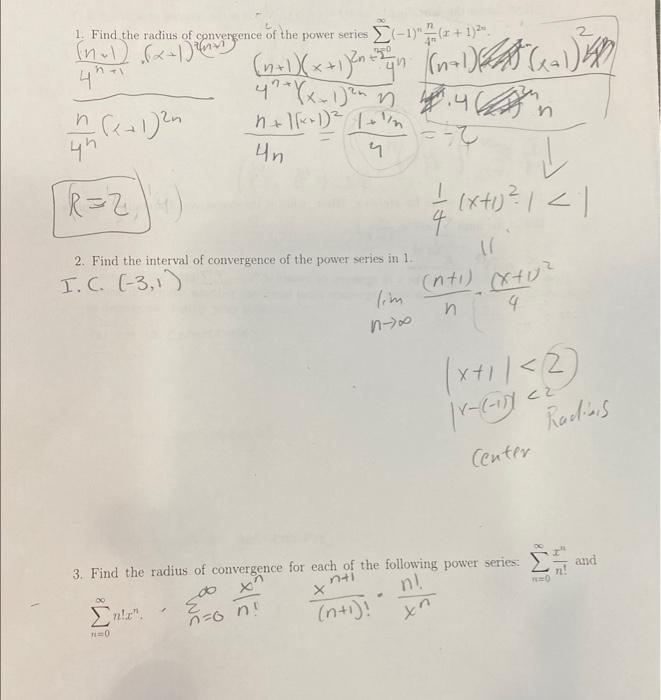 1. Find the radius of convergence of the power series \sum_{n=0}^{\infty} (-1)^n \frac{n}{4^n} (x + 1)^{2n}.
\frac{(n+1)}{4^{n+1}} \cdot (x+1)^{2(n+1)}
\frac{n}{4^n} (x+1)^{2n}
\frac{(n+1)(x+1)^{2n+2} 4^n}{4^{n+1} (x+1)^{2n} n}
\frac{(n+1) (x+1)^2}{4 n}
\frac{n+1(x+1)^2}{4n} = \frac{1+1/n}{4} =
R=2
\frac{1}{4} (x+1)^2 \cdot 1 < 1
2. Find the interval of convergence of the power series in 1.
I.C. (-3,1)
lim n→∞ \frac{(n+1)}{n} \cdot \frac{(x+1)^2}{4}
|x+1| < 2
|x-(-1)| < 2
Radius
Center
3. Find the radius of convergence for each of the following power series: \sum_{n=0}^{\infty} \frac{x^n}{n!} and
\sum_{n=0}^{\infty} n!x^n.
\sum_{n=0}^{\infty} \frac{x^n}{n!} \frac{x^{n+1}}{(n+1)!} \cdot \frac{n!}{x^n}